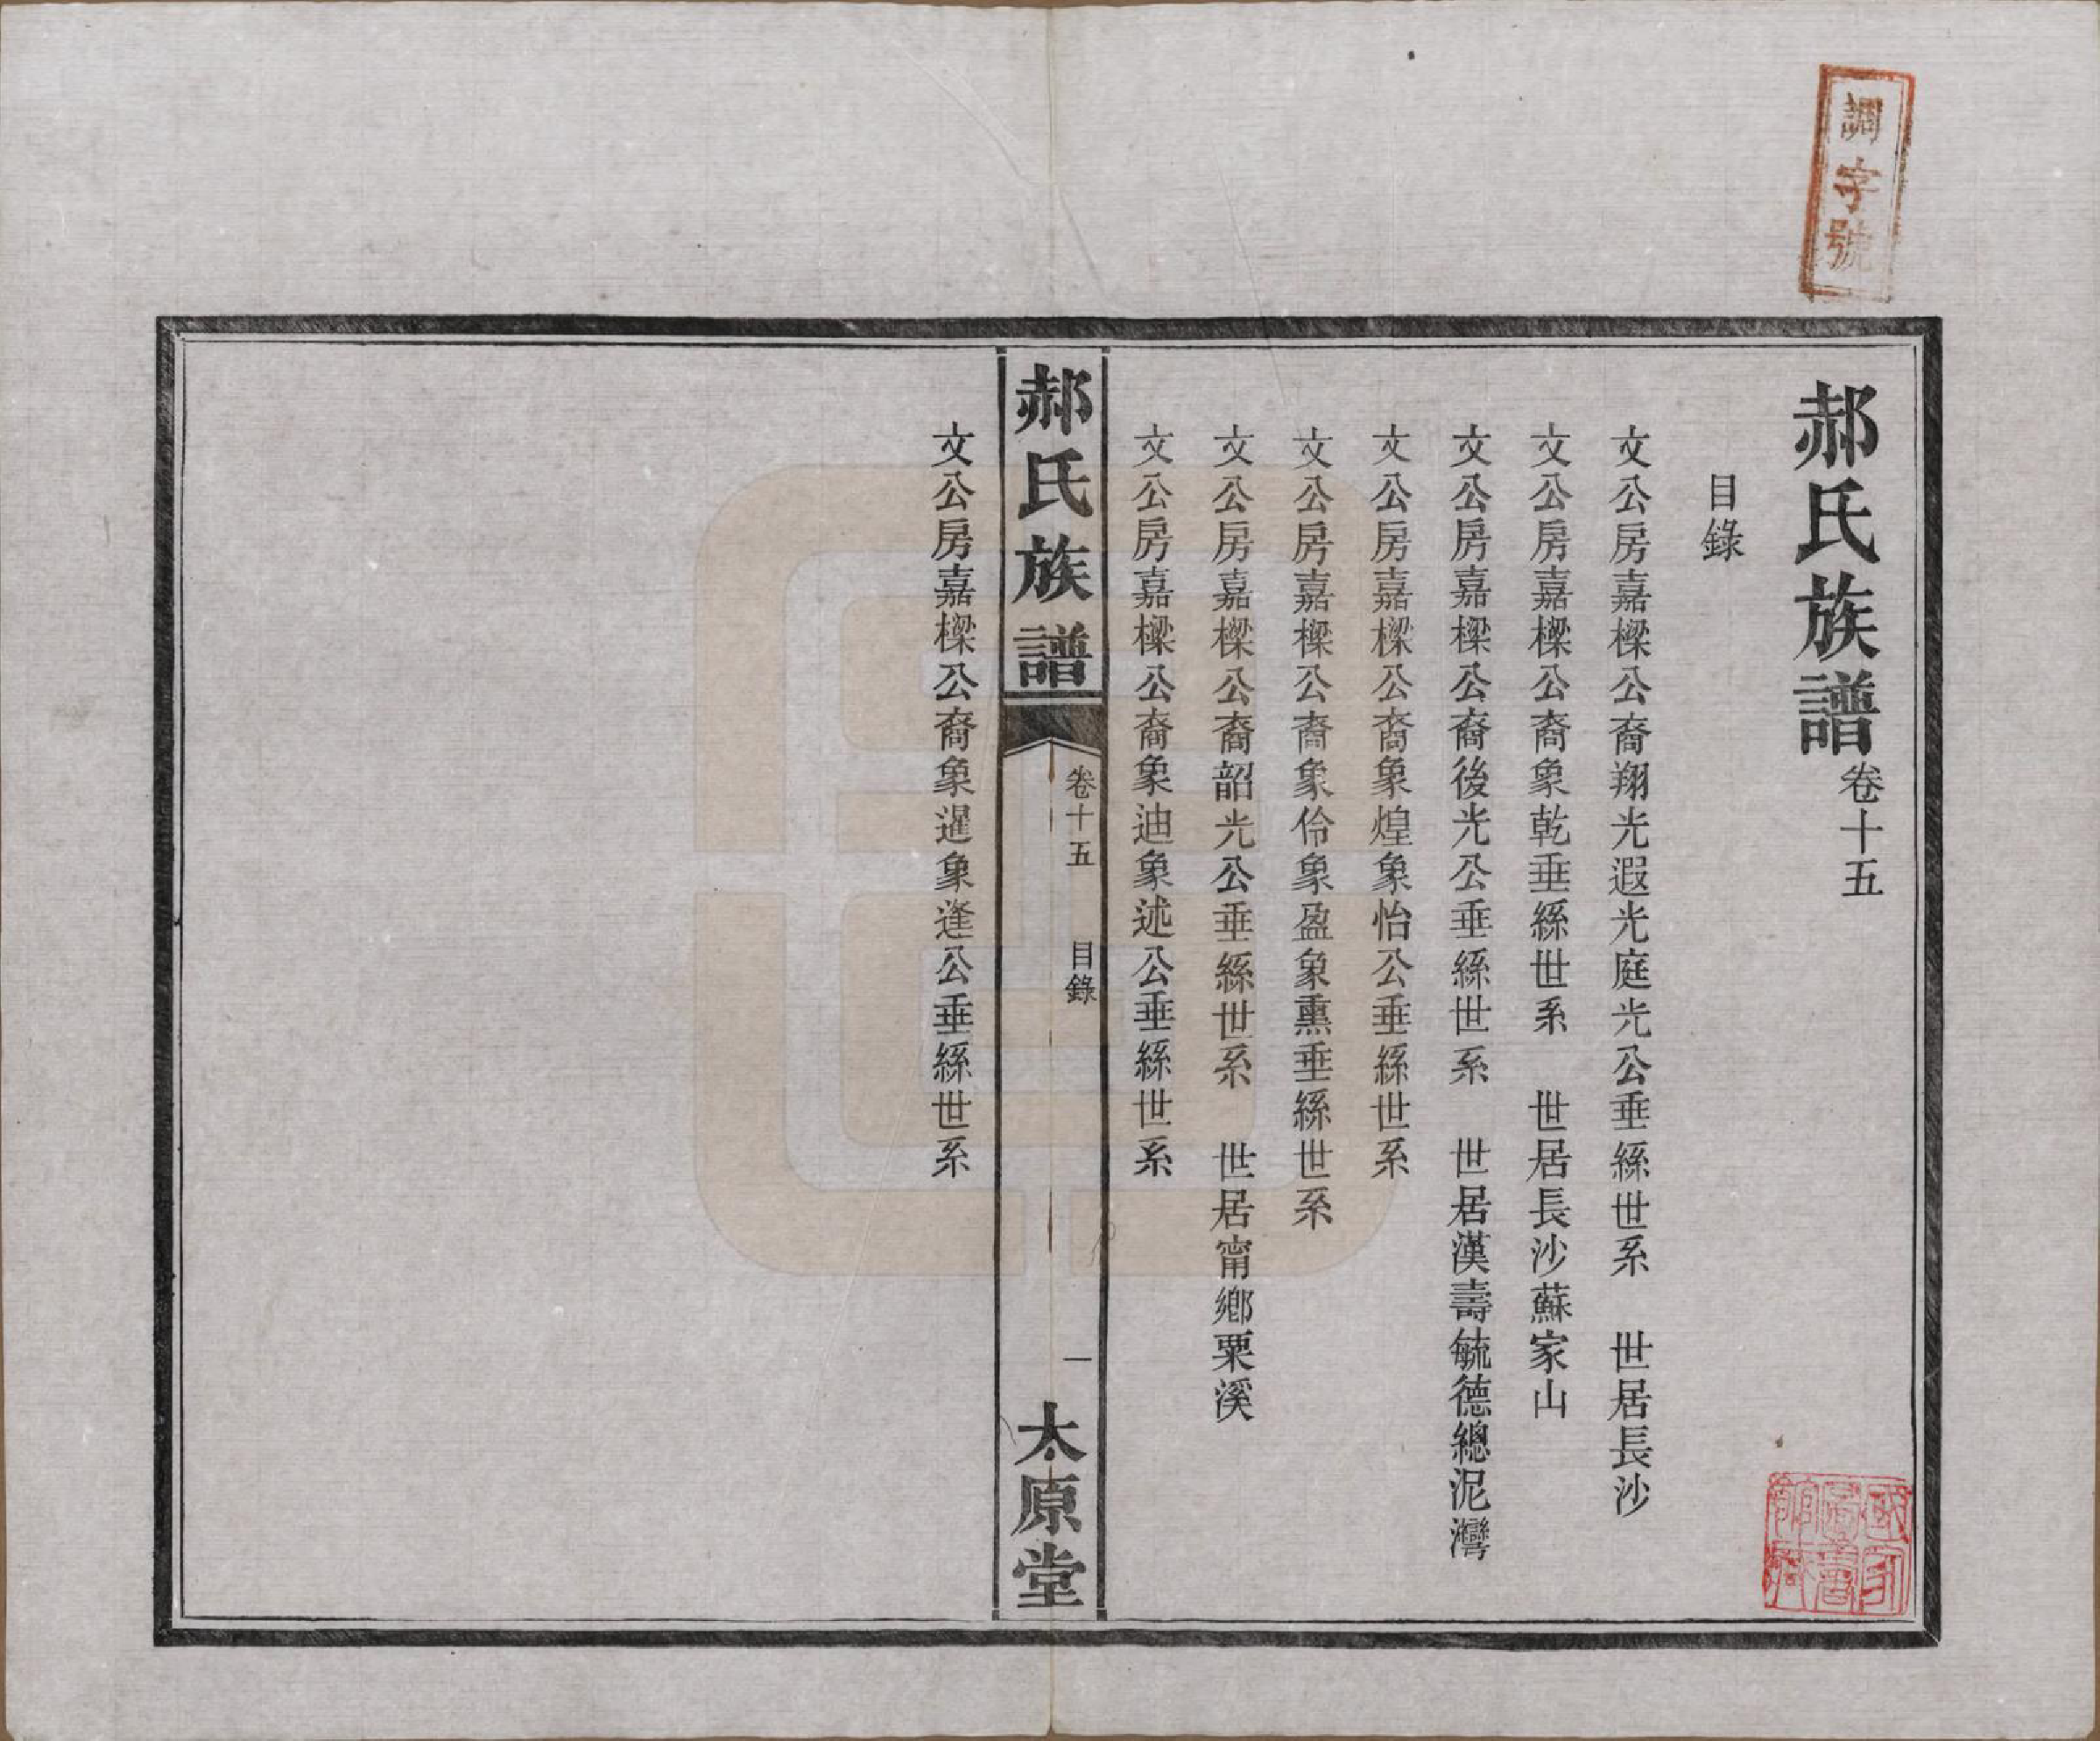 調字號
郝氏族譜卷十五
目錄
文公房嘉樑公裔翔光遐光庭光公垂絲世系　世居長沙
文公房嘉樑公裔象乾垂絲世系　世居長沙蘇家山
文公房嘉樑公裔後光公垂絲世系　世居漢壽毓德總泥灣
文公房嘉樑公裔象煌象怡公垂絲世系
文公房嘉樑公裔象伶象盈象熏垂絲世系
文公房嘉樑公裔韶光公垂絲世系　世居甯鄉粟溪
文公房嘉樑公裔象迪象述公垂絲世系
郝氏族譜
卷十五　目錄
一
太原堂
文公房嘉樑公裔象暹象逢公垂絲世系
國家圖書館藏